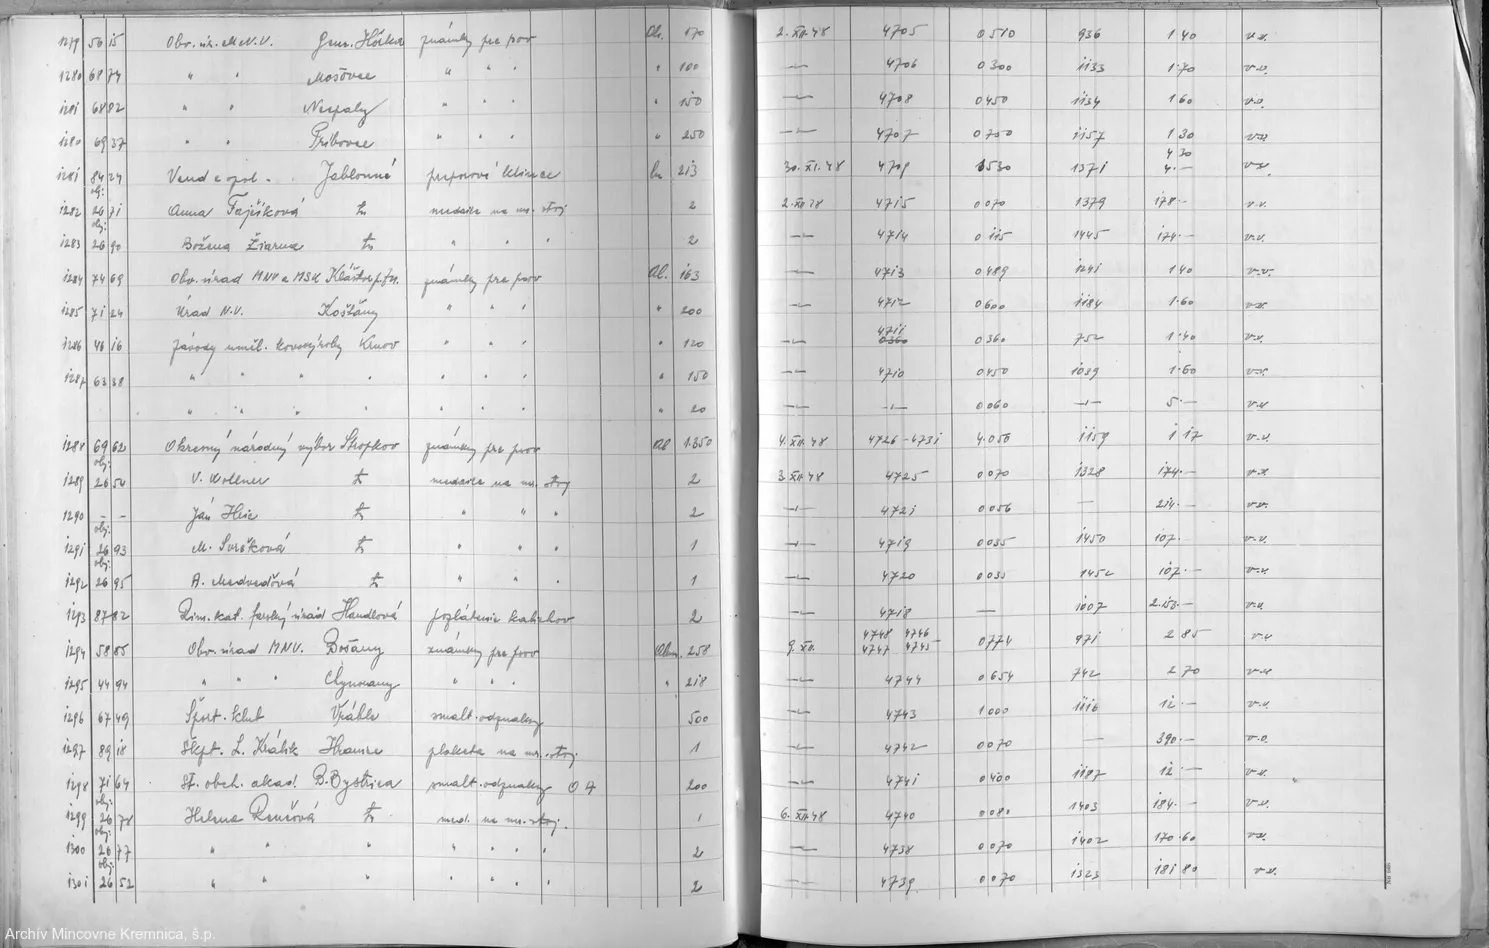 1279 56 15 Obv. úr. MNV. Gem. Hôrka známky pre psov Ok. 170 2. XII. 48 4705 0510 936 1 40 v.v.
1280 68 74 " " Mošovce " " " " 100 —"— 4706 0300 1133 1·70 v.v.
1281 68 82 " " Necpaly " " " " 150 —"— 4708 0450 1134 1 60 v.v.
1280 69 37 " " Príbovce " " " " 250 —"— 4707 0750 1157 1 30 v.v.
1281 84 24 Vend a spol. Jablonné 213 30. XI. 48 4709 0530 1371 4 30 4·— v.v.
obj. 1282 26 71 Anna tu medaila na ms. stroj 2 2. XII 48 4715 0070 1379 178·— v.v.
obj. 1283 26 90 Božena Žiarna tu " " " 2 —"— 4714 0115 1445 174·— v.v.
1284 74 69 Obv. úrad MNV a MSK známky pre psov Al. 163 —"— 4713 0489 1241 1 40 v.v.
1285 71 24 Úrad N.V. Košťany " " " " 200 —"— 4712 0600 1184 1·60 v.v.
1286 46 16 Závody uměl. kovovýroby Krnov " " " " 120 —"— 4711 0360 0360 752 1·40 v.v.
1287 63 38 " " " " " " " " 150 —"— 4710 0450 1089 1·60 v.v.
" " " " " " " " 20 —"— —"— 0060 —"— 5·— v.v.
1288 69 62 Okresný národný výbor Stropkov známky pre psov Al 1.350 4. XII. 48 4726 – 4731 4.050 1159 1 17 v.v.
obj. 1289 26 54 V. Wollner tu medaila na ms. stroj 2 3. XII 48 4725 0070 1328 174·— v.v.
1290 – – Ján tu " " " 2 —"— 4721 0056 — 214·— v.v.
obj. 1291 26 93 M. Svrčková tu " " " 1 —"— 4719 0035 1450 107·— v.v.
obj. 1292 26 95 A. Medveďová tu " " " 1 —"— 4720 0035 1452 107·— v.v.
1293 87 82 Rím. kat. farský úrad Handlová pozlátenie kalichov 2 —"— 4718 — 1007 v.v.
1294 58 85 Obv. úrad MNV. Bošany známky pre psov Alum. 258 9. XII. 4748 4746 4747 4745 0774 971 2 85 v.v.
1295 44 94 " " " Chynorany " " " " 218 —"— 4744 0654 742 2 70 v.v.
1296 67 49 Šport. klub Vráble smalt. odznaky 500 —"— 4743 1000 1116 12·— v.v.
1297 89 18 Škpt. L. Králik Hranice plaketa na ms. stroj. 1 —"— 4742 0070 — 390·— v.v.
1298 71 64 Št. obch. akad. B. Bystrica smalt. odznaky OA 200 —"— 4741 0400 1187 12·— v.v.
obj. 1299 26 78 Helena tu med. na ms. stroj. 1 6. XII. 48 4740 0080 1403 184·— v.v.
obj. 1300 26 77 " " " " " " " 2 —"— 4738 0070 1402 170·60 v.v.
obj. 1301 26 52 " " " " " " " 2 —"— 4739 0070 1323 181 80 v.v.
Archív Mincovne Kremnica, š.p.